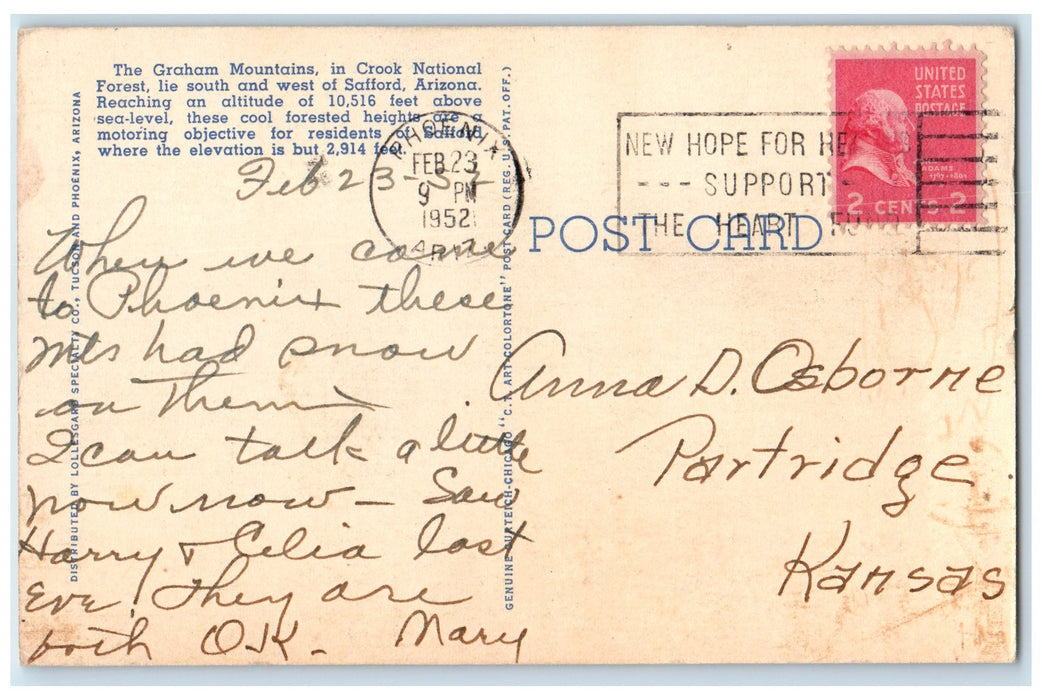 The Graham Mountains, in Crook National
Forest, lie south and west of Safford, Arizona.
Reaching an altitude of 10,516 feet above
sea-level, these cool forested heights are a
motoring objective for residents of Safford,
where the elevation is but 2,914 feet.
DISTRIBUTED BY LOLLESGARD SPECIALTY CO., TUCSON AND PHOENIX, ARIZONA
GENUINE CURTEICH-CHICAGO "C. T. ART-COLORTONE" POST CARD (REG. U. S. PAT. OFF.)
PHOENIX
FEB 23
9 PM
1952
ARIZ
NEW HOPE FOR HE
--- SUPPORT -
THE HEART FUND
UNITED
STATES
POSTAGE
ADAMS
1797-1801
2 CENTS 2
POST CARD
Feb 23-52
When we came
to Phoenix these
mts had snow
on them
I can talk a little
now now — Saw
Harry & Celia last
Eve! They are
both O.K. Mary
Anna D. Osborne
Partridge.
Kansas